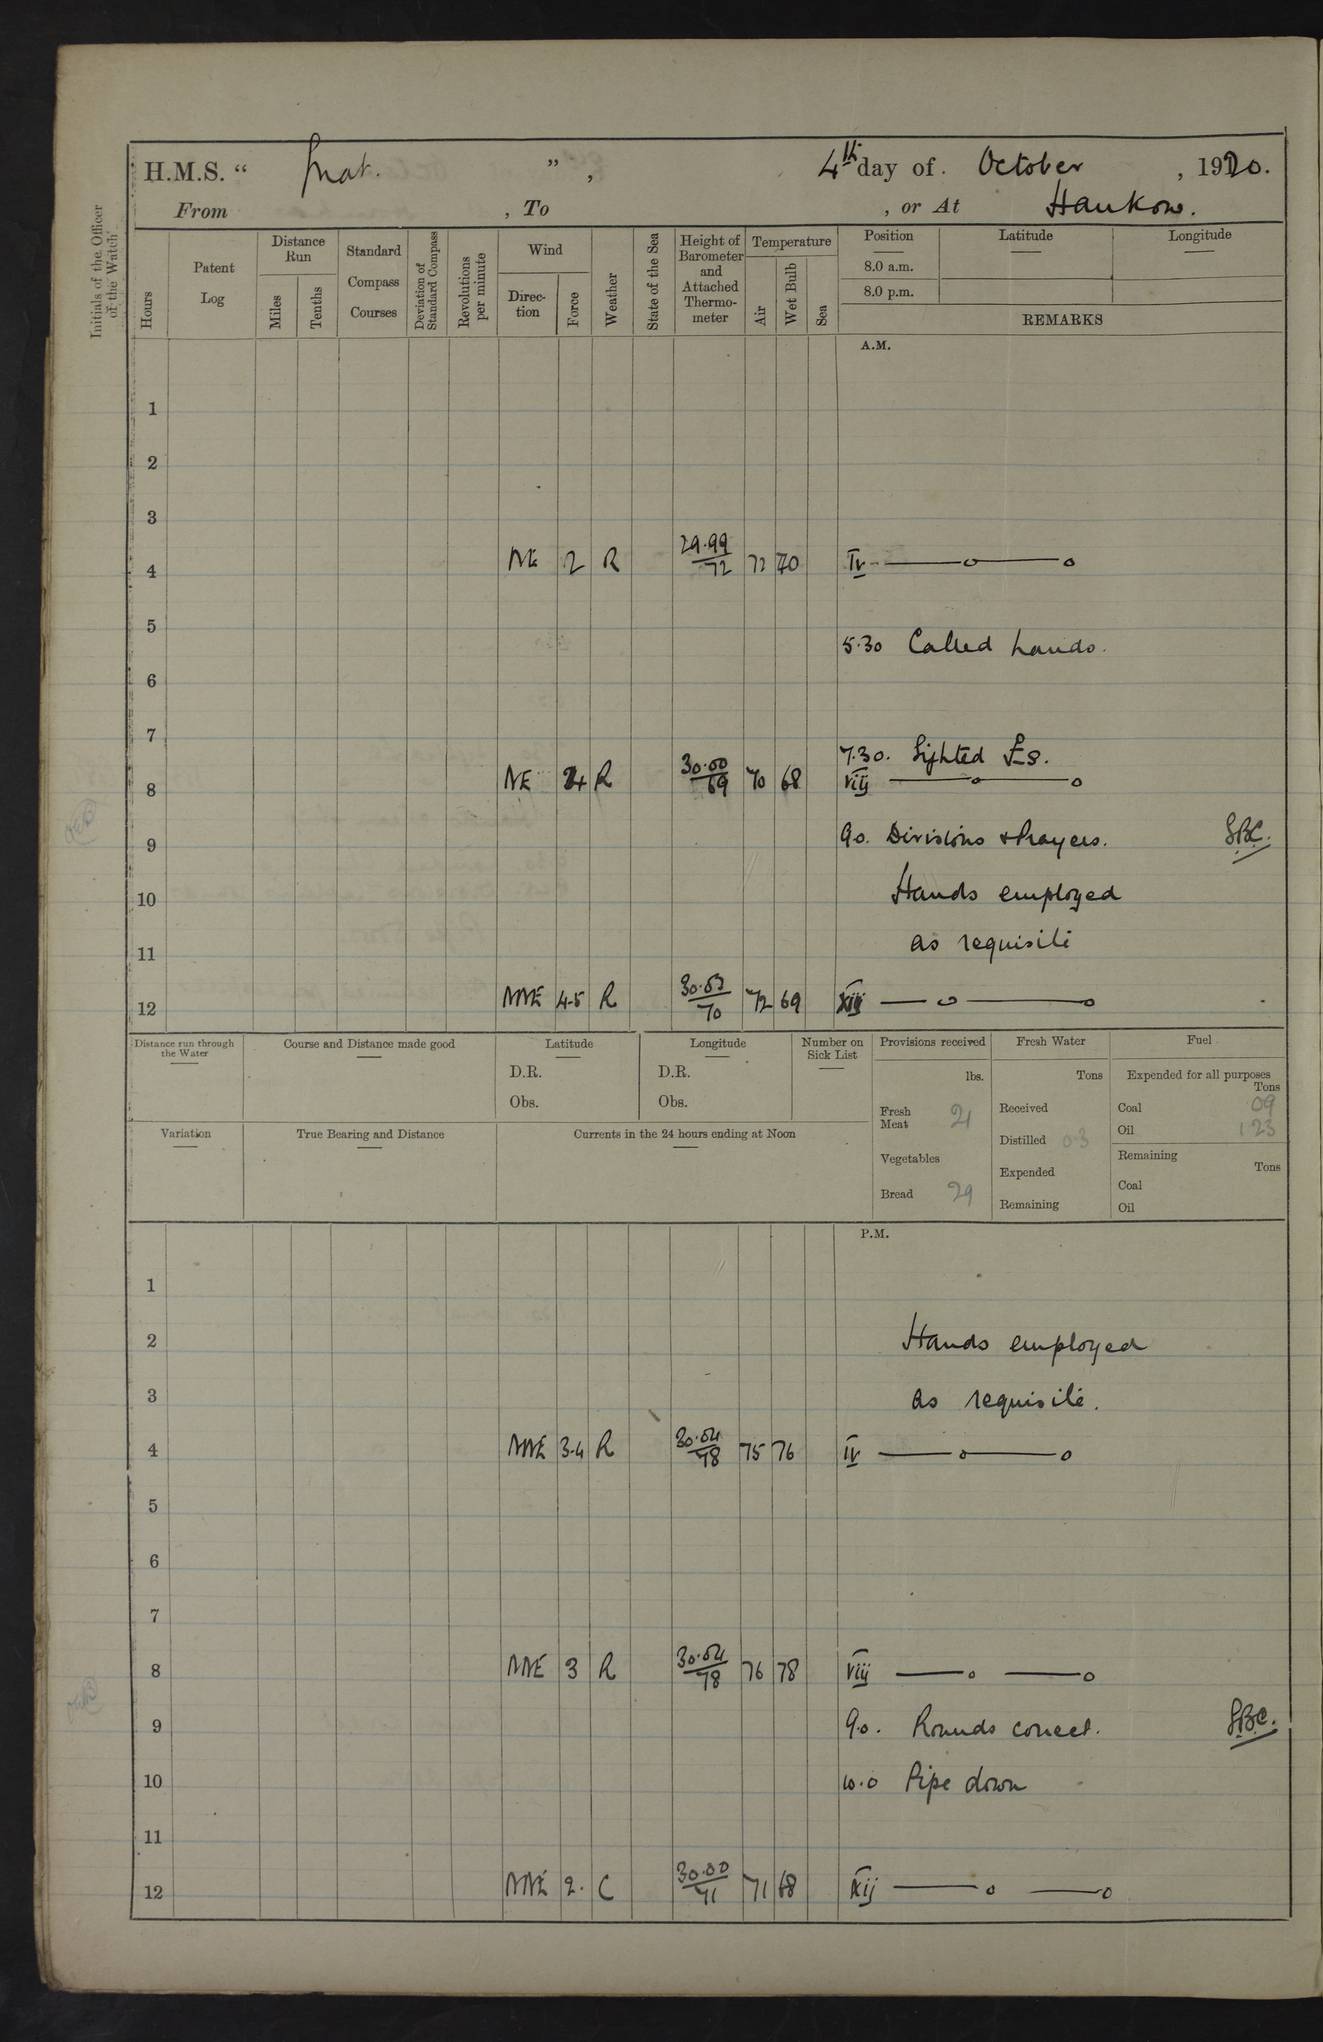 H.M.S. “ Gnat. ”, 4th day of October, 1920.
From , To , or At Hankow.
Initials of the Officer of the Watch
Hours
Patent Log
Distance Run
Miles
Tenths
Standard Compass Courses
Deviation of Standard Compass
Revolutions per minute
Wind
Direc-tion
Force
Weather
State of the Sea
Height of Barometer and Attached Thermo-meter
Temperature
Air
Wet Bulb
Sea
Position
Latitude
Longitude
8.0 a.m.
8.0 p.m.
REMARKS
A.M.
1
2
3
4 NE 2 R 29.99/72 72 70 IV
5
5.30 Called hands.
6
7
7.30. Lighted
8 NE 4 R 30.00/69 70 68 VIII
9 9.0. Divisions & Prayers. SBC.
10 Hands employed
11 as requisite
12 NNE 4.5 R 30.03/70 72 69 XII
Distance run through the Water
Course and Distance made good
Latitude
D.R.
Obs.
Longitude
D.R.
Obs.
Number on Sick List
Provisions received
lbs.
Fresh Meat 21
Vegetables
Bread 29
Fresh Water
Tons
Received
Distilled 0.3
Expended
Remaining
Fuel
Expended for all purposes
Tons
Coal 09
Oil 1.23
Remaining
Tons
Coal
Oil
Variation
True Bearing and Distance
Currents in the 24 hours ending at Noon
P.M.
1
2 Hands employed
3 as requisite.
4 NNE 3.4 R 30.04/78 75 76 IV
5
6
7
8 NNE 3 R 30.04/78 76 78 VIII
9 9.0. Rounds correct. SBC.
10 10.0 Pipe down
11
12 NNE 2. C 30.00/71 71 68 XII